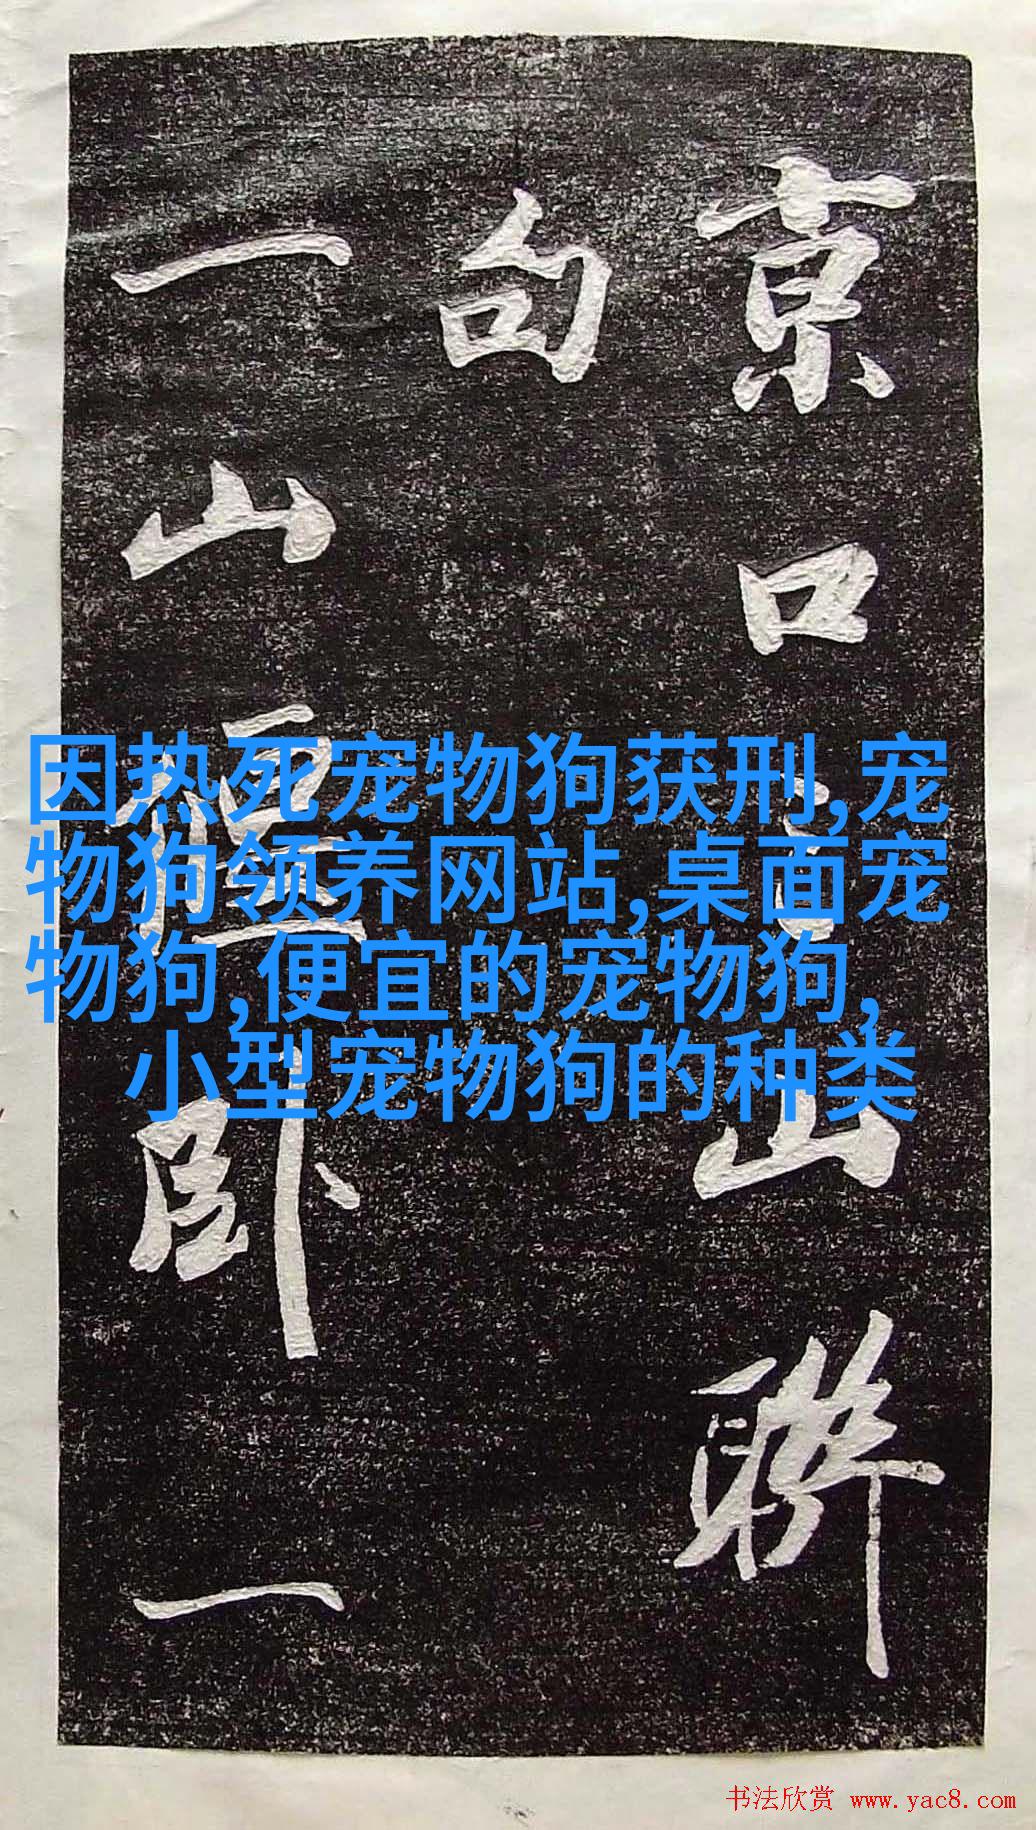 京口山聯
句
一山卧一
因热死宠物狗获刑,宠
物狗领养网站,桌面宠
物狗,便宜的宠物狗,
小型宠物狗的种类
书法欣赏 www.yac8.com